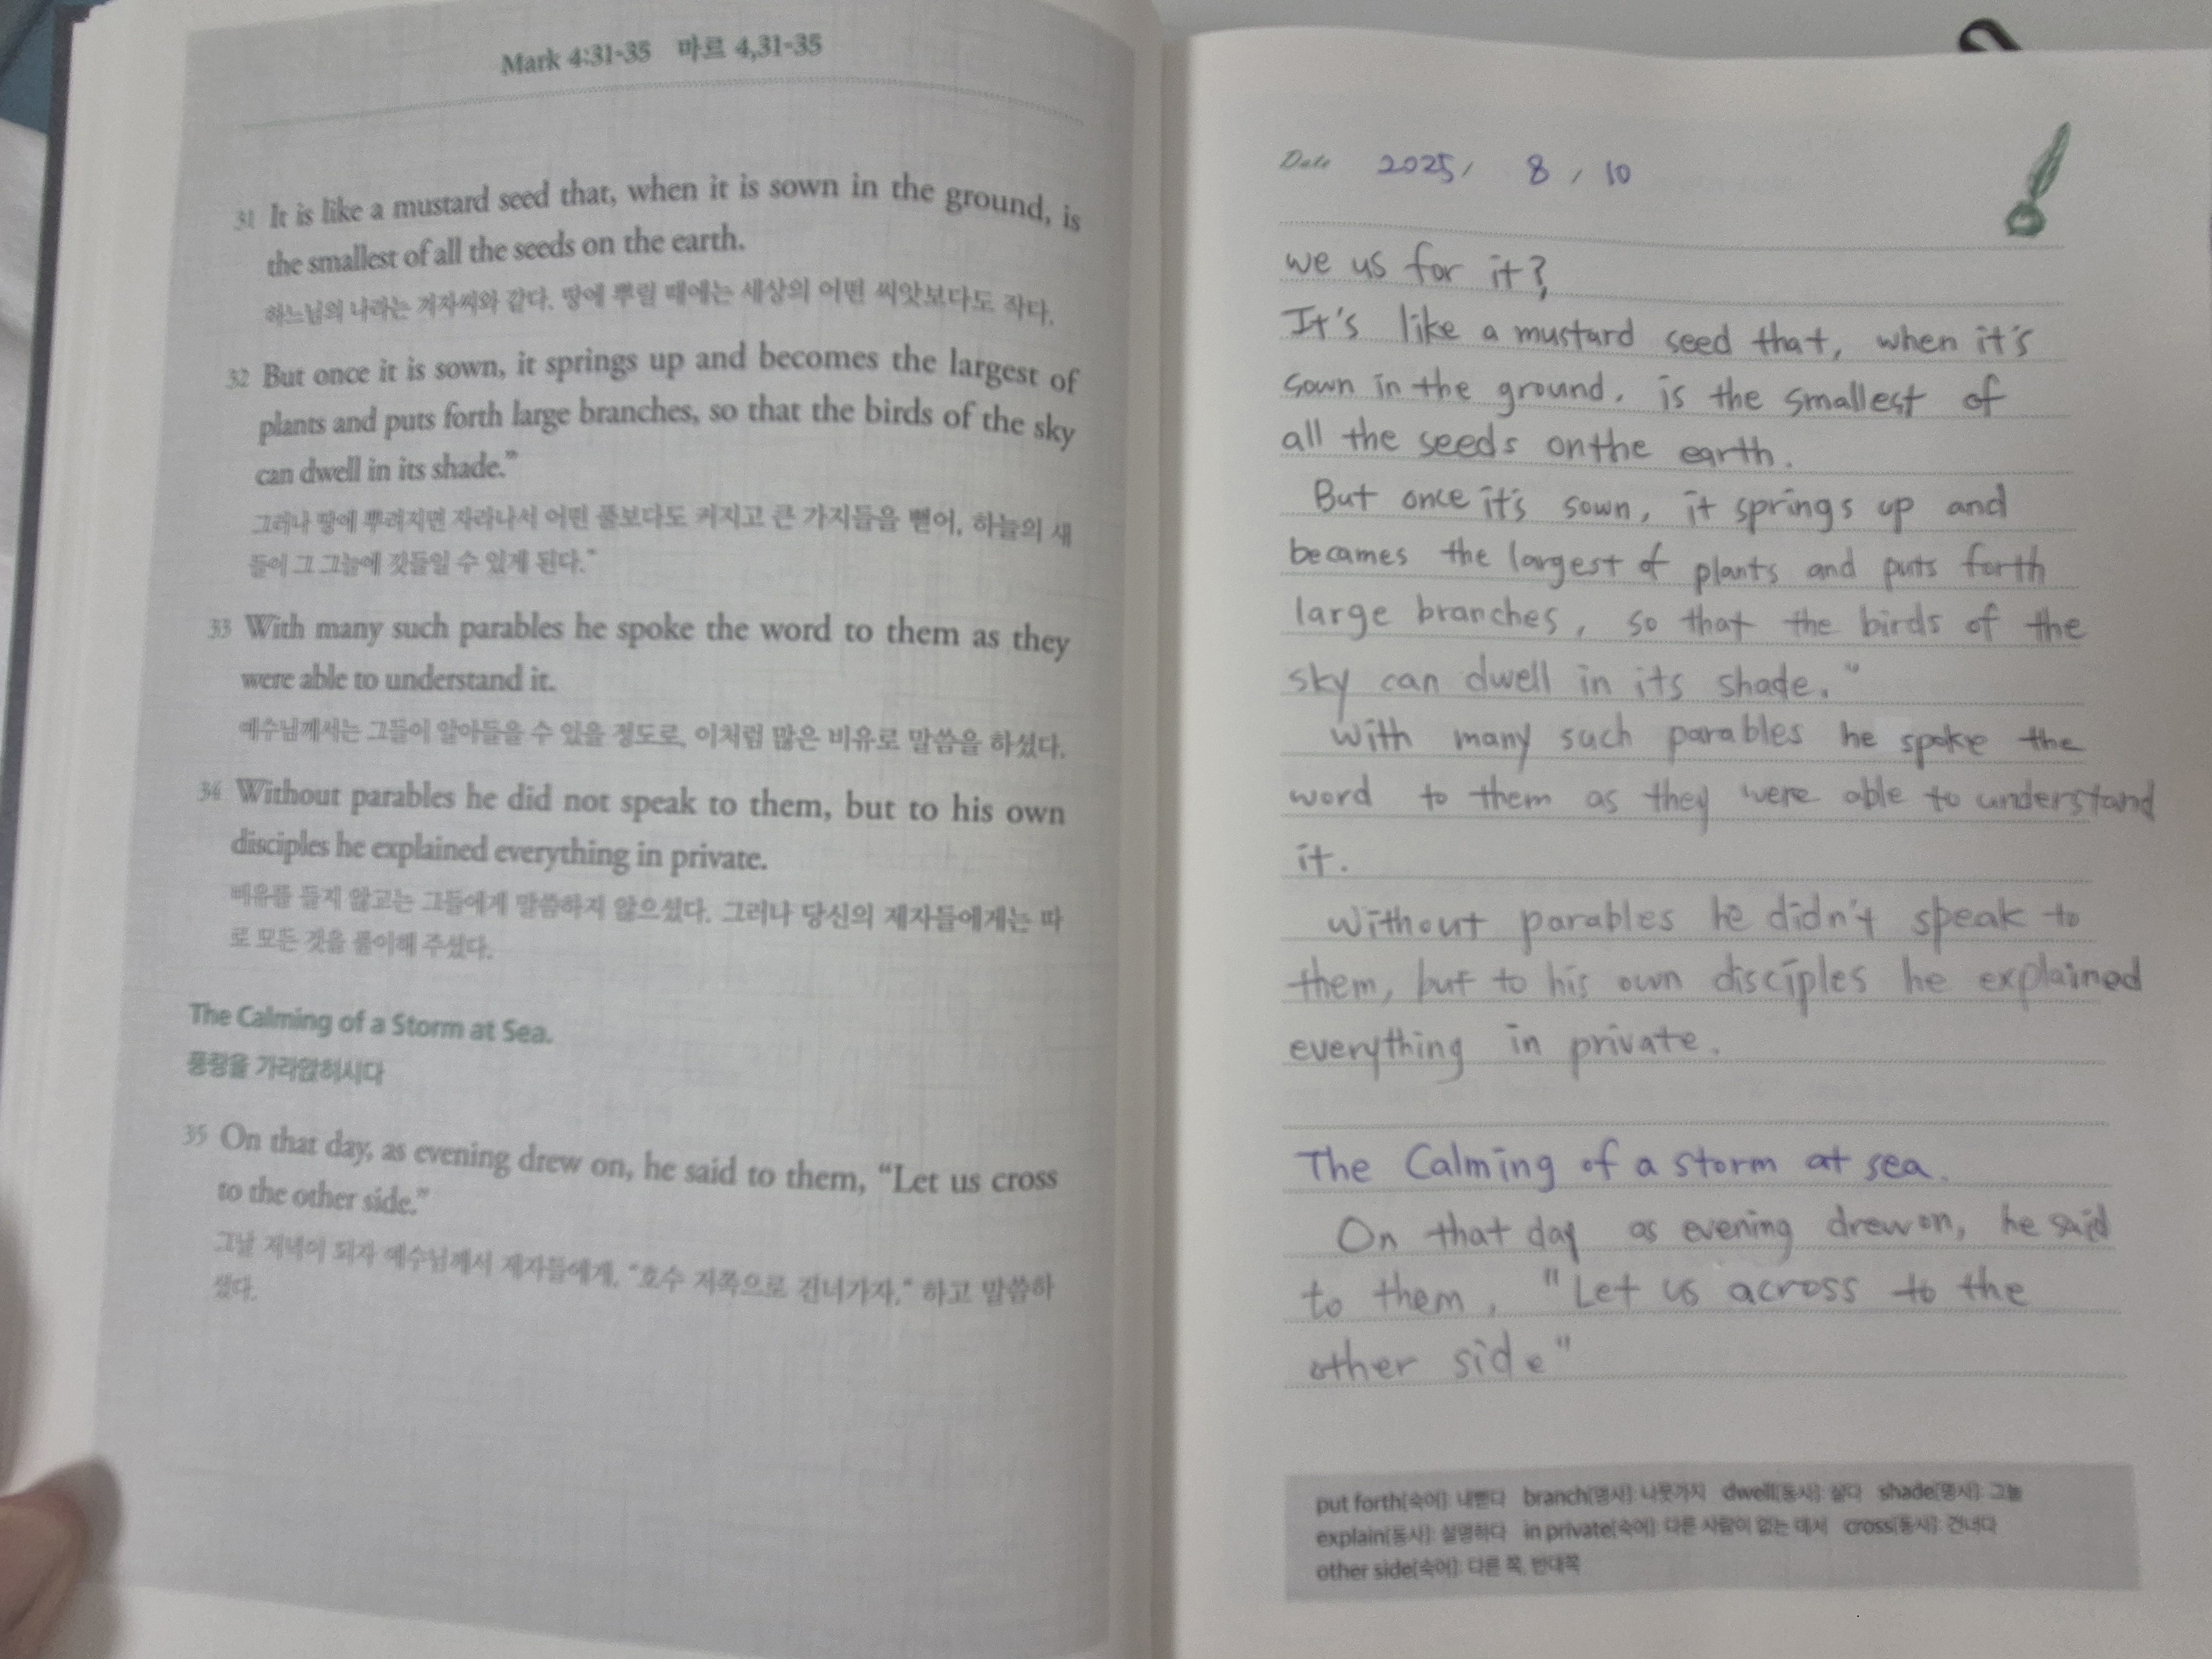 Mark 4:31-35 마르 4,31-35
31 It is like a mustard seed that, when it is sown in the ground, is
the smallest of all the seeds on the earth.
하느님의 나라는 겨자씨와 같다. 땅에 뿌릴 때에는 세상의 어떤 씨앗보다도 작다.
32 But once it is sown, it springs up and becomes the largest of
plants and puts forth large branches, so that the birds of the sky
can dwell in its shade.”
그러나 땅에 뿌려지면 자라나서 어떤 풀보다도 커지고 큰 가지들을 뻗어, 하늘의 새
들이 그 그늘에 깃들일 수 있게 된다.”
33 With many such parables he spoke the word to them as they
were able to understand it.
예수님께서는 그들이 알아들을 수 있을 정도로, 이처럼 많은 비유로 말씀을 하셨다.
34 Without parables he did not speak to them, but to his own
disciples he explained everything in private.
비유를 들지 않고는 그들에게 말씀하지 않으셨다. 그러나 당신의 제자들에게는 따
로 모든 것을 풀이해 주셨다.
The Calming of a Storm at Sea.
풍랑을 가라앉히시다
35 On that day, as evening drew on, he said to them, “Let us cross
to the other side.”
그날 저녁이 되자 예수님께서 제자들에게, “호수 저쪽으로 건너가자.” 하고 말씀하
셨다.
Date 2025/ 8 / 10
we us for it?
It's like a mustard seed that, when it's
sown in the ground, is the smallest of
all the seeds on the earth.
But once it's sown, it springs up and
becames the largest of plants and puts forth
large branches, so that the birds of the
sky can dwell in its shade."
with many such parables he spoke the
word to them as they were able to understand
it.
without parables he didn't speak to
them, but to his own disciples he explained
everything in private.
The Calming of a storm at sea.
On that day as evening drew on, he said
to them, "Let us across to the
other side"
put forth[숙어]: 내뻗다 branch[명사]: 나뭇가지 dwell[동사]: 살다 shade[명사]: 그늘
explain[동사]: 설명하다 in private[숙어]: 다른 사람이 없는 데서 cross[동사]: 건너다
other side[숙어]: 다른 쪽, 반대쪽